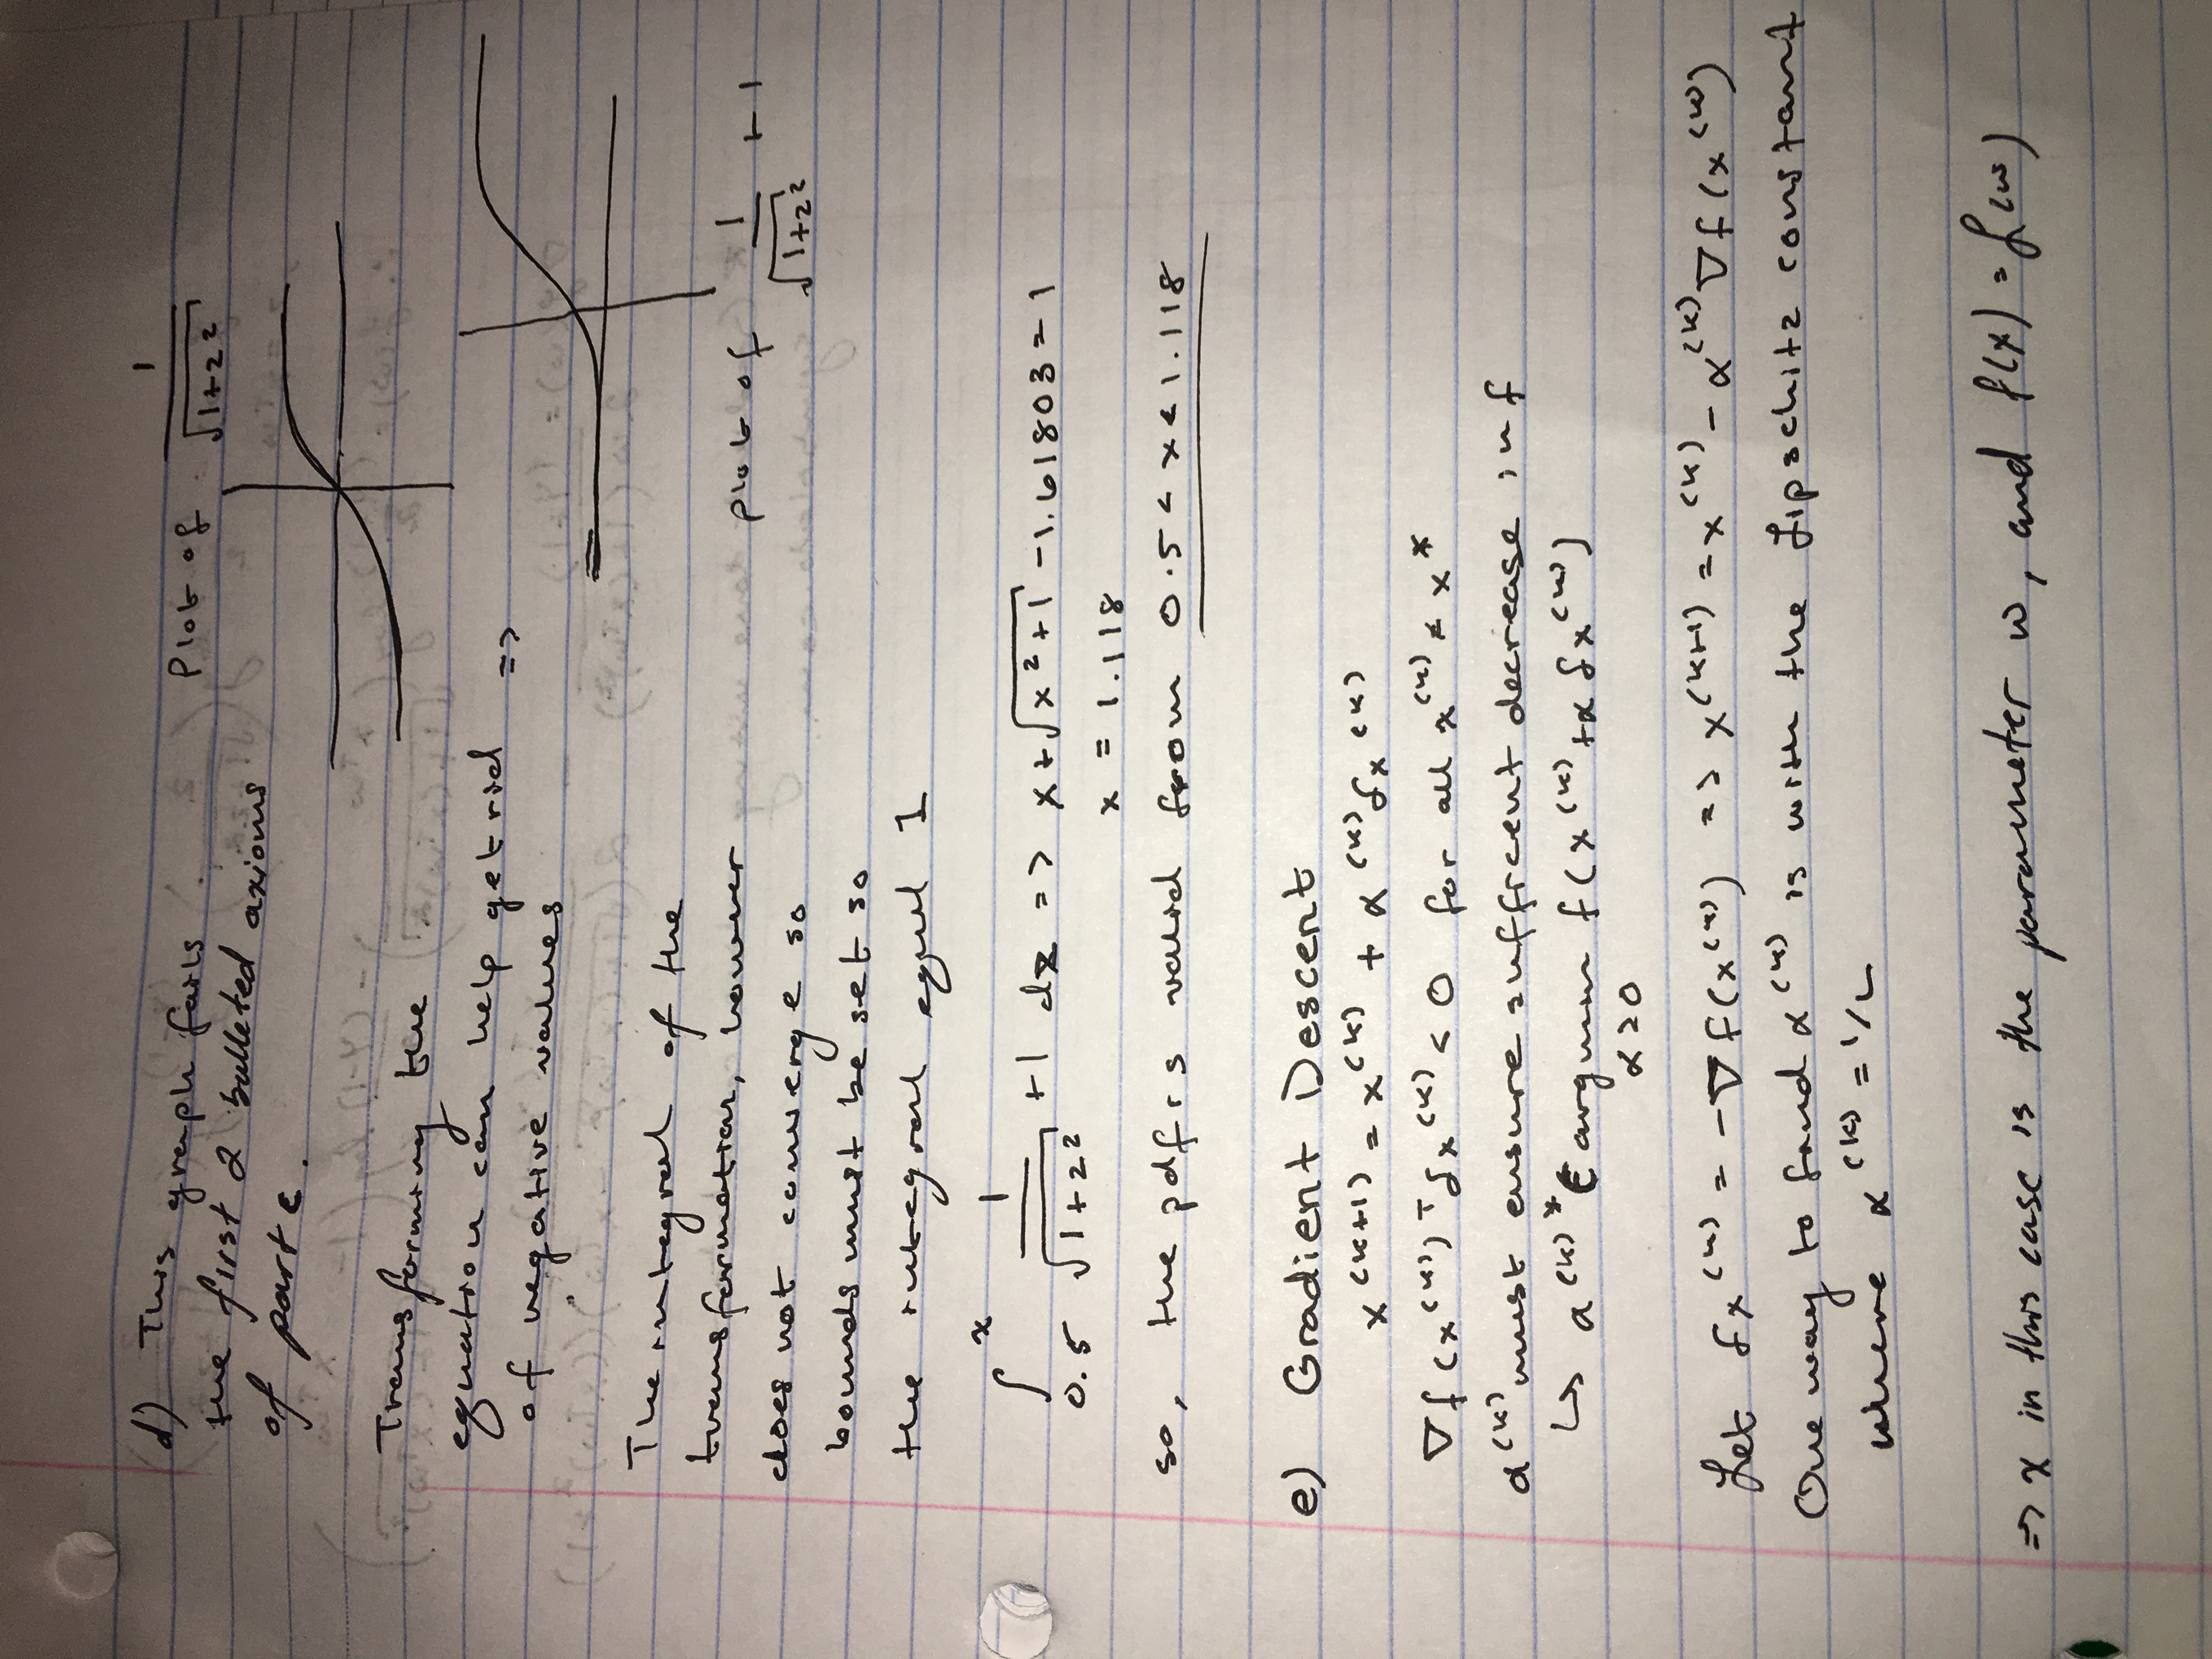 d) This graph fails
the first 2 bulleted axioms
of part c.
Plot of 1/√(1+z²)
Transforming the
equation can help get rid =>
of negative values
The integral of the
transformation, however
does not converge so
bounds must be set so
the integral equal 1
plot of 1/√(1+z²) + 1
∫_0.5^x 1/√(1+z²) +1 dz => x+√(x²+1) -1.61803 = 1
x = 1.118
so, the pdf is valid from 0.5 < x < 1.118
e) Gradient Descent
x^(k+1) = x^(k) + α^(k) δx^(k)
∇f(x^(k))^T δx^(k) < 0 for all x^(k) ≠ x*
α^(k) must ensure sufficent decrease in f
↳ α^(k)* ∈ argmin f(x^(k) + α δx^(k))
α≥0
Let δx^(k) = -∇f(x^(k)) => x^(k+1) = x^(k) - α^(k) ∇f(x^(k))
One way to find α^(k) is with the Lipschitz constant
where α^(k) = 1/L
=> x in this case is the parameter w, and f(x) = ℒ(w)